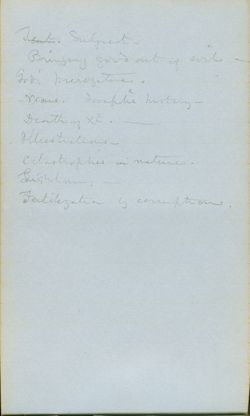 Text. Subject -
Bringing good out of evil -
God's Prerogative.
Joseph's history -
Death of Xt. -
Illustrations -
Catastrophes in nature.
Lightning -
Fertilization by corruption.